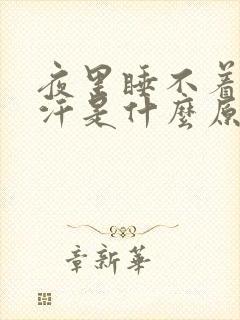 夜里睡不着
汗是什麼原
章新華